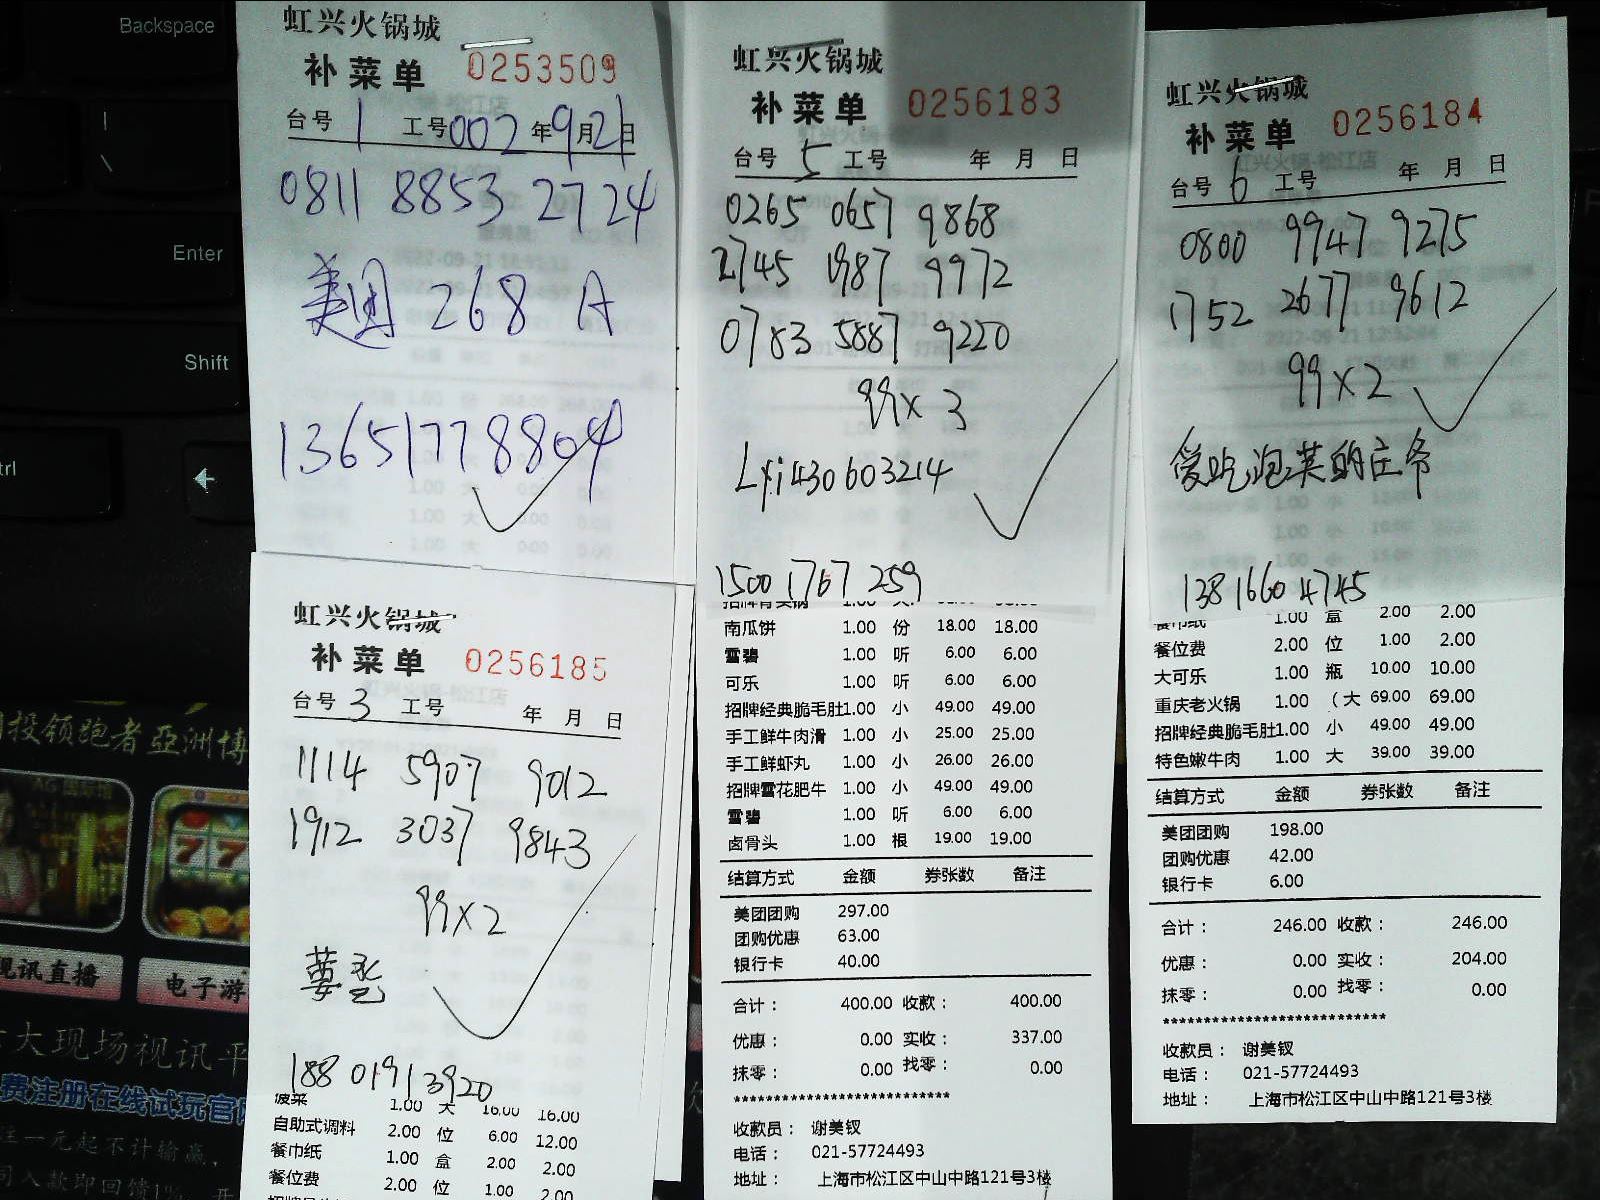 Backspace
Enter
Shift
虹兴火锅城
补菜单 0253509
台号 1 工号 002 年 9 月 21 日
0811 8853 2724
美团 268 A
13651778804
虹兴火锅城
补菜单 0256183
台号 5 工号 年 月 日
0265 0657 9868
2745 1987 9972
0783 5887 9220
99x3
Lyi430603214
1500 1767 259
南瓜饼 1.00 份 18.00 18.00
雪碧 1.00 听 6.00 6.00
可乐 1.00 听 6.00 6.00
招牌经典脆毛肚1.00 小 49.00 49.00
手工鲜牛肉滑 1.00 小 25.00 25.00
手工鲜虾丸 1.00 小 26.00 26.00
招牌雪花肥牛 1.00 小 49.00 49.00
雪碧 1.00 听 6.00 6.00
卤骨头 1.00 根 19.00 19.00
结算方式 金额 券张数 备注
美团团购 297.00
团购优惠 63.00
银行卡 40.00
合计： 400.00 收款： 400.00
优惠： 0.00 实收： 337.00
抹零： 0.00 找零： 0.00
***************************
收款员： 谢美钗
电话： 021-57724493
地址： 上海市松江区中山中路121号3楼
虹兴火锅城
补菜单 0256184
台号 6 工号 年 月 日
0800 9947 9275
1752 2677 9612
99x2
爱吃泡菜的庄爷
138 1660 4745
餐巾纸 1.00 盒 2.00 2.00
餐位费 2.00 位 1.00 2.00
大可乐 1.00 瓶 10.00 10.00
重庆老火锅 1.00 （大 69.00 69.00
招牌经典脆毛肚1.00 小 49.00 49.00
特色嫩牛肉 1.00 大 39.00 39.00
结算方式 金额 券张数 备注
美团团购 198.00
团购优惠 42.00
银行卡 6.00
合计： 246.00 收款： 246.00
优惠： 0.00 实收： 204.00
抹零： 0.00 找零： 0.00
****************************
收款员： 谢美钗
电话： 021-57724493
地址： 上海市松江区中山中路121号3楼
虹兴火锅城
补菜单 0256185
台号 3 工号 年 月 日
1114 5907 9012
1912 3037 9843
99x2
188 0191 3920
菠菜 1.00 大 16.00 16.00
自助式调料 2.00 位 6.00 12.00
餐巾纸 1.00 盒 2.00 2.00
餐位费 2.00 位 1.00 2.00
投领跑者亞洲博
视讯直播
电子游
大现场视讯平
费注册在线试玩官
注一元起不计输赢，